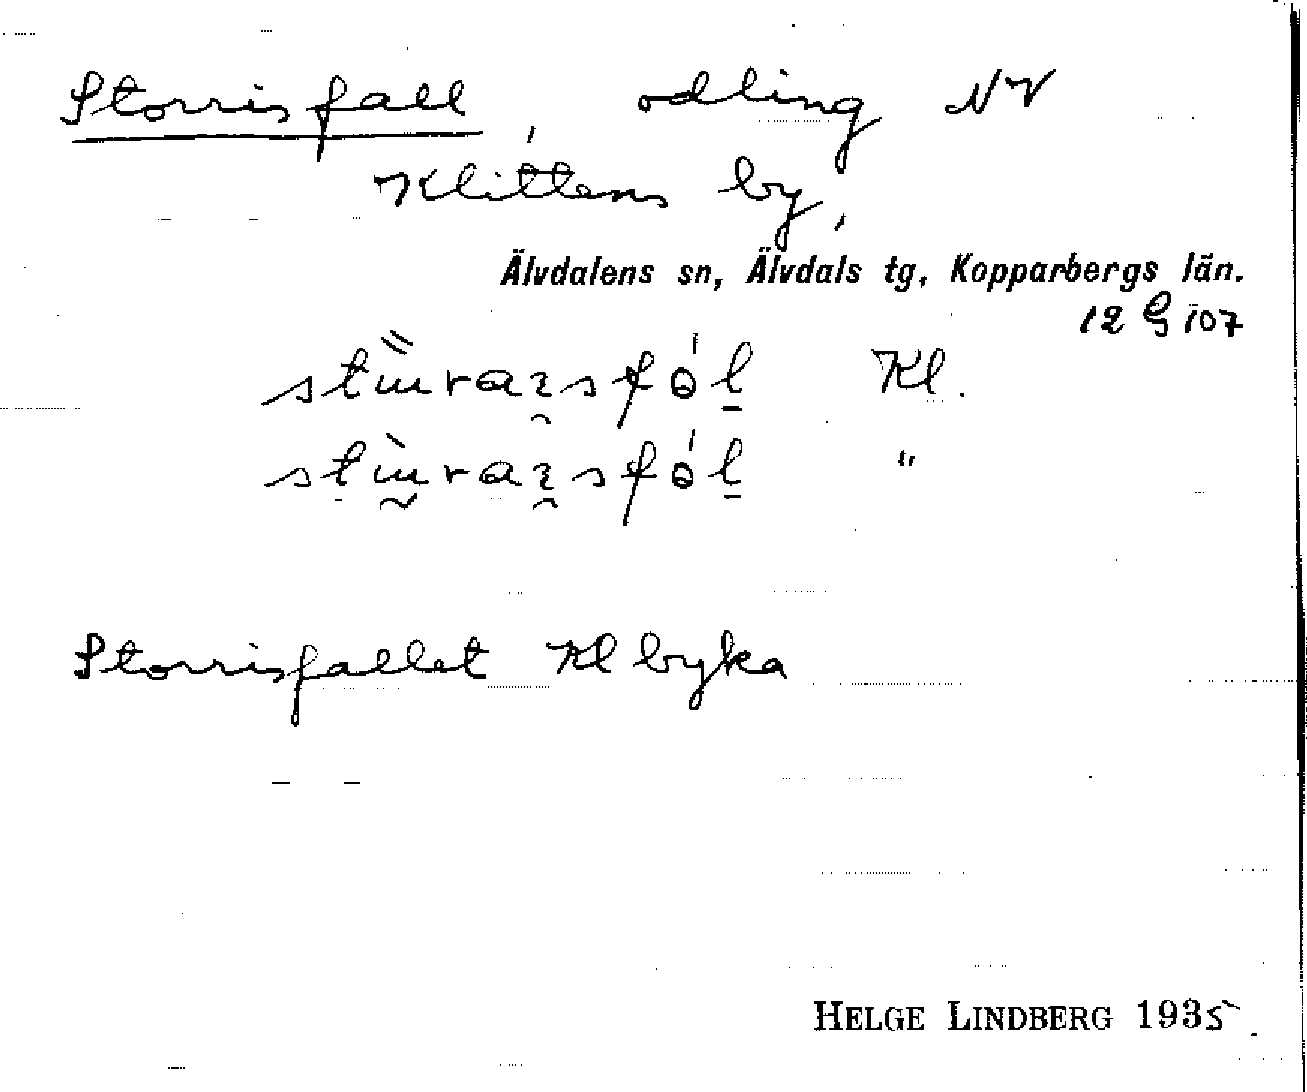 Storrisfall, odling NV
Klittens by,
Älvdalens sn, Älvdals tg, Kopparbergs län.
12 G 107
Kl.
"
Storrisfallet Kl byka
HELGE LINDBERG 1935.